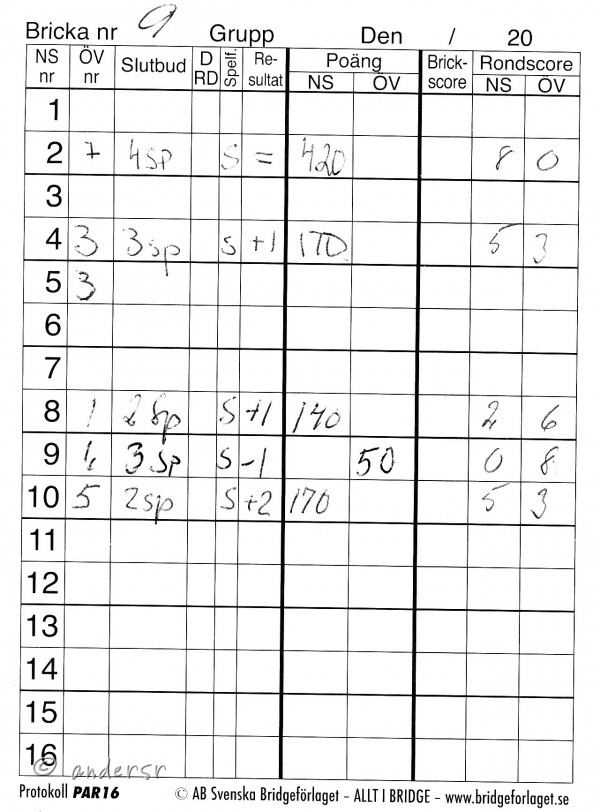 Bricka nr 9 Grupp Den / 20
NS nr ÖV nr Slutbud D RD Spelf. Re- sultat Poäng NS ÖV Brick- score Rondscore NS ÖV
1
2 7 4sp S = 420 8 0
3
4 3 3sp S +1 170 5 3
5 3
6
7
8 1 2sp S +1 140 2 6
9 4 3sp S -1 50 0 8
10 5 2sp S +2 170 5 3
11
12
13
14
15
16
© andersr
Protokoll PAR16 © AB Svenska Bridgeförlaget – ALLT I BRIDGE – www.bridgeforlaget.se